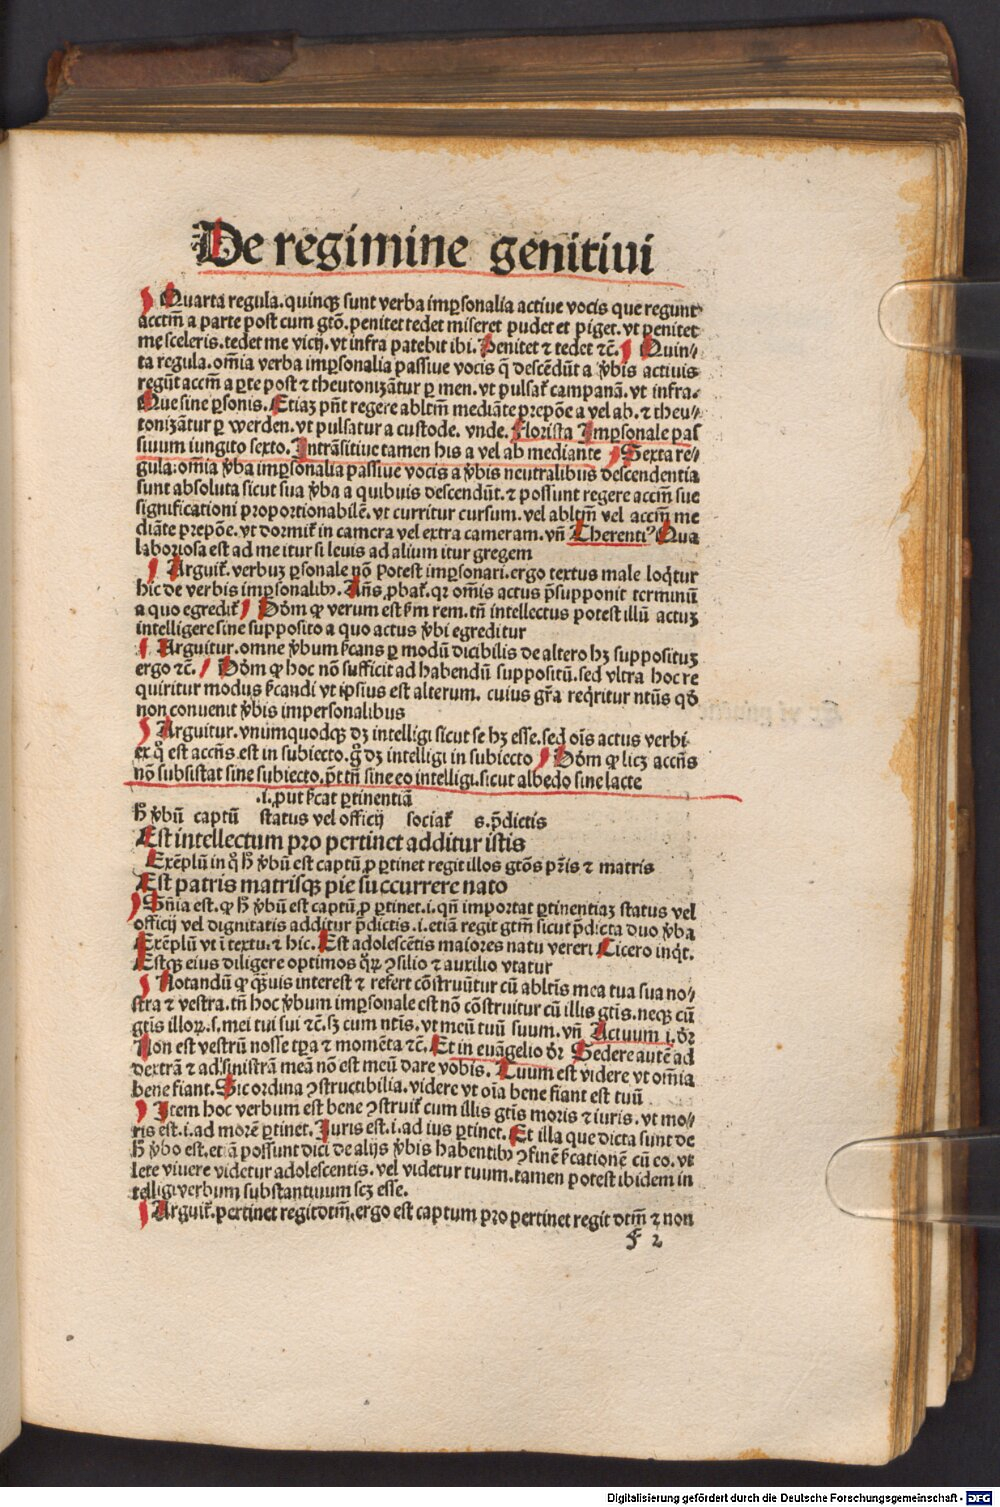 De regimine genitiui
Quarta regula. quinqȝ sunt verba imꝑsonalia actiue vocis que regunt
acctm̄ a parte post cum gtō. penitet tedet miseret pudet et piget. vt penitet
me sceleris. tedet me vicij. vt infra patebit ibi. Penitet ⁊ tedet ⁊c̄. Quin⸗
ta regula. om̄ia verba imꝑsonalia passiue vocis q̄ descēdūt a v̄bis actiuis
regūt accm̄ a ꝑte post ⁊ theutonizātur ꝑ men. vt pulsat᷑ campanā. vt infra.
Que sine ꝑsonis. Etiaȝ pn̄t regere abltm̄ mediāte prepōe a vel ab. ⁊ theu⸗
tonizātur ꝑ werden. vt pulsatur a custode. vnde. Florista Imꝑsonale pas
siuum iungito sexto. Intrāsitiue tamen his a vel ab mediante Sexta re⸗
gula: om̄ia v̄ba imꝑsonalia passiue vocis a v̄bis neutralibus descendentia
sunt absoluta sicut sua v̄ba a quibuis descendūt. ⁊ possunt regere accm̄ sue
significationi proportionabilē. vt curritur cursum. vel abltm̄ vel accm̄ me
diāte prepōe. vt dormit᷑ in camera vel extra cameram. vn̄ Therentiꝰ Qua
laboriosa est ad me itur si leuis ad alium itur gregem
Arguit᷑. verbuȝ ꝑsonale nō potest imꝑsonari. ergo textus male loq̄tur
hic de verbis imꝑsonalibꝫ. An̄s ꝓbat᷑. qꝛ om̄is actus p̄supponit terminū
a quo egredit᷑ Dōm ꝙ verum est ẜm rem. tn̄ intellectus potest illū actuȝ
intelligere sine supposito a quo actus v̄bi egreditur
Arguitur. omne v̄bum ẜcans ꝑ modū dicibilis de altero hȝ supposituȝ
ergo ⁊c̄. Dōm ꝙ hoc nō sufficit ad habendū suppositū. sed vltra hoc re
quiritur modus ẜcandi vt ipsius est alterum. cuius gr̄a req̄ritur ntūs qd̄
non conuenit v̄bis impersonalibus
Arguitur. vnumquodqȝ dȝ intelligi sicut se hȝ esse. sed oīs actus verbi
ex quo est accn̄s. est in subiecto. g̊ dȝ intelligi in subiecto Dōm ꝙ licȝ accn̄s
nō subsistat sine subiecto. p̄t tn̄ sine eo intelligi. sicut albedo sine lacte
.i. ꝓut ẜcat ꝑtinentiā
H̄ v̄bū captū status vel officij sociat᷑ s. p̄dictis
Est intellectum pro pertinet additur istis
Exēplū in quo h̄ v̄bū est captū ꝓ ꝑtinet regit illos gtōs pr̄is ⁊ matris
Est patris matrisqȝ pie succurrere nato
Sn̄ia est. ꝙ h̄ v̄bū est captū ꝓ ꝑtinet. i. qn̄ importat ꝑtinentiaȝ status vel
officij vel dignitatis additur p̄dictis. i. etiā regit gtm̄ sicut p̄dicta duo v̄ba
Exēplū vt ī textu. ⁊ hic. Est adolescētis maiores natu vereri. Cicero inq̄t.
Estqȝ eius diligere optimos quoꝝ ꝯsilio ⁊ auxilio vtatur
Notandū ꝙ qȝuis interest ⁊ refert cōstruūtur cū abltīs mea tua sua no⸗
stra ⁊ vestra. tn̄ hoc v̄bum imꝑsonale est nō cōstruitur cū illis gtīs. neqȝ cū
gtīs illoꝝ. s. mei tui sui ⁊c̄. sȝ cum ntīs. vt meū tuū suum. vn̄ Actuum i. dr̄
Non est vestrū nosse tꝑa ⁊ momēta ⁊c̄. Et in euāgelio dr̄ Sedere autē ad
dextrā ⁊ ad sinistrā meā nō est meū dare vobis. Tuum est videre vt om̄ia
bene fiant. Sic ordina ꝯstructibilia. videre vt oīa bene fiant est tuū
Item hoc verbum est bene ꝯstruit᷑ cum illis gtīs moris ⁊ iuris. vt mo⸗
ris est. i. ad morē ꝑtinet. Iuris est. i. ad ius ꝑtinet. Et illa que dicta sunt de
h̄ v̄bo est. etiā possunt dici de alijs v̄bis habentibꝫ ꝯsinē ẜcationē cū eo. vt
lete viuere videtur adolescentis. vel videtur tuum. tamen potest ibidem in
telligi verbum substantiuum scȝ esse.
Arguit᷑. pertinet regit dtm̄. ergo est captum pro pertinet regit dtm̄ ⁊ non
f 2
Digitalisierung gefördert durch die Deutsche Forschungsgemeinschaft - DFG